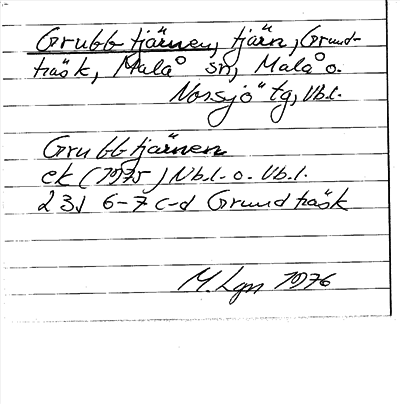 Grubbtjärnen, tjärn, Grund-
träsk, Malå sn, Malå o.
Norsjö tg, Vb.l.
Grubbtjärnen
ek (1975) Nb.l. o. Vb.l.
23J 6-7 c-d Grundträsk
M. Lgn 1976